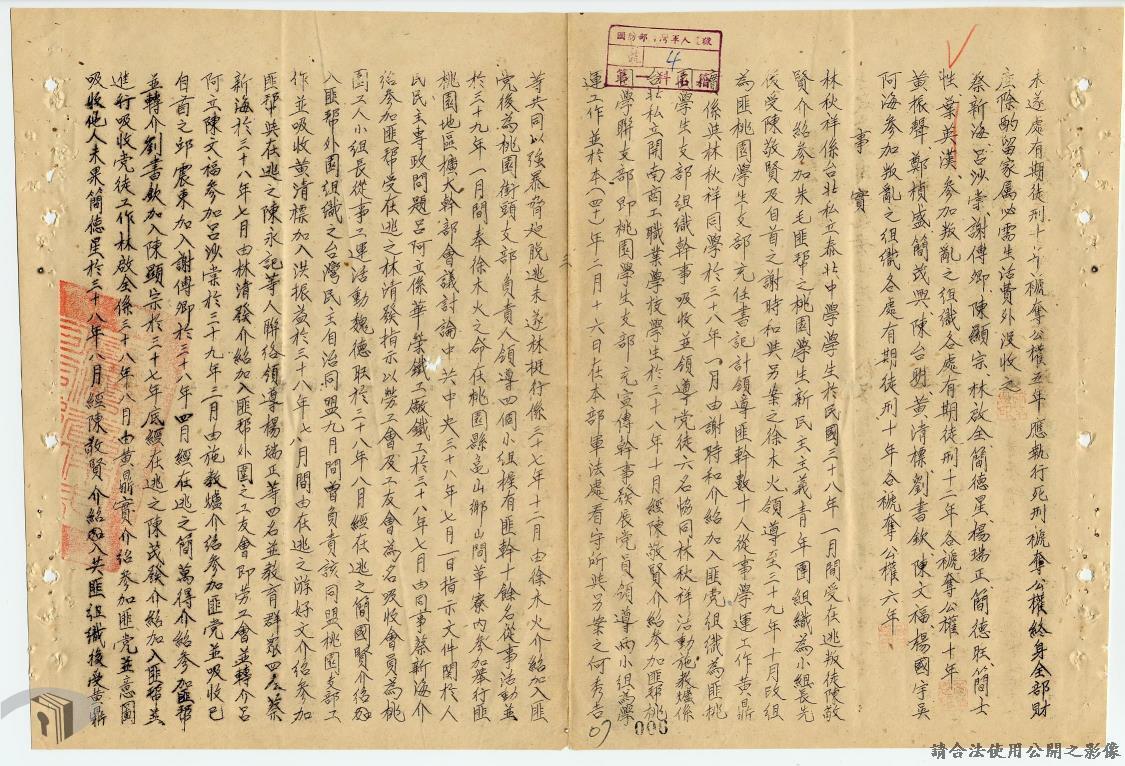 未遂處有期徒刑十年褫奪公權五年應執行死刑褫奪公權終身全部財
產除酌留家屬必需生活費外沒收之
蔡新海呂沙棠謝傳卿陳顯宗林啟全簡德星楊瑞正簡德旺簡士
性葉英漢參加叛亂之組織各處有期徒刑十二年各褫奪公權十年
黃振聲鄭楨盛簡茂興陳台明黃清標劉書欽陳文福楊國宇吳
阿海參加叛亂之組織各處有期徒刑十年各褫奪公權六年
事實
林秋祥係台北私立泰北中學學生於民國三十八年一月間受在逃叛徒陳敬
賢介紹參加朱毛匪幫之桃園學生新民主主義青年團組織為小組長先
後受陳敬賢及自首之謝時和與另案之徐木火領導至三十九年十月改組
為匪桃園學生支部充任書記計領導匪幹數十人從事學運工作黃鼎
實係與林秋祥同學於三十八年一月由謝時和介紹加入匪黨組織為匪桃
園學生支部組織幹事吸收並領導黨徒六名協同林秋祥活動施教爐係
台北私立開南商工職業學校學生於三十八年十月經陳敬賢介紹參加匪幫桃
園學聯支部即桃園學生支部充宣傳幹事發展黨員領導兩小組為學
運工作並於本(四十)年二月十六日在本部軍法處看守所與另案之何秀吉
等共同以強暴脅迫脫逃未遂林挺行係三十七年十二月由徐木火介紹加入匪
黨後為桃園街頭支部負責人領導四個小組擁有匪幹十餘名從事活動並
於三十九年一月間奉徐木火之命在桃園縣龜山鄉山間草寮內參加舉行匪
桃園地區擴大幹部會議討論中共中央三十八年七月一日指示文件關於人
民民主專政問題呂阿立係華榮鐵工廠鐵工於三十八年七月由同事蔡新海介
紹參加匪幫受在逃之林清發指示以勞工會及工友會為名吸收會員為桃
園工人小組長從事工運活動魏德旺於三十八年八月經在逃之簡國賢介紹加
入匪幫外圍組織之台灣民主自治同盟九月間曾負責該同盟桃園支部工
作並吸收黃清標加入洪振益於三十八年七八月間由在逃之游好文介紹參加
匪幫與在逃之陳永記等人聯絡領導楊瑞正等四名並教育群眾四名蔡
新海於三十八年七月由林清發介紹加入匪幫外圍之工友會即勞工會並轉介呂
阿立陳文福參加呂沙棠於三十九年三月由施教爐介紹參加匪黨並吸收已
自首之邱震東加入謝傳卿於三十八年四月經在逃之簡萬得介紹參加匪幫
並轉介劉書欽加入陳顯宗於三十七年底經在逃之陳茂發介紹加入匪幫並
進行吸收黨徒工作林啟全係三十八年十八月由黃鼎實介紹參加匪黨並意圖
吸收他人未果簡德星於三十八年八月經陳敬賢介紹加入共匪組織後受黃鼎
4
第一科名籍
000
請合法使用公開之影像